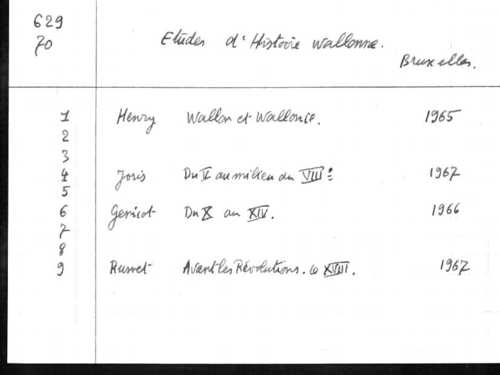 629
70
Etudes d'Histoire wallonne.
Bruxelles.
1 Henry Wallon et Wallonie. 1965
2
3
4 Joris Du V au milieu du VIII e 1967
5
6 Genicot Du X au XIV. 1966
7
8
9 Ruwet Avant les Révolutions. le XVIII. 1967